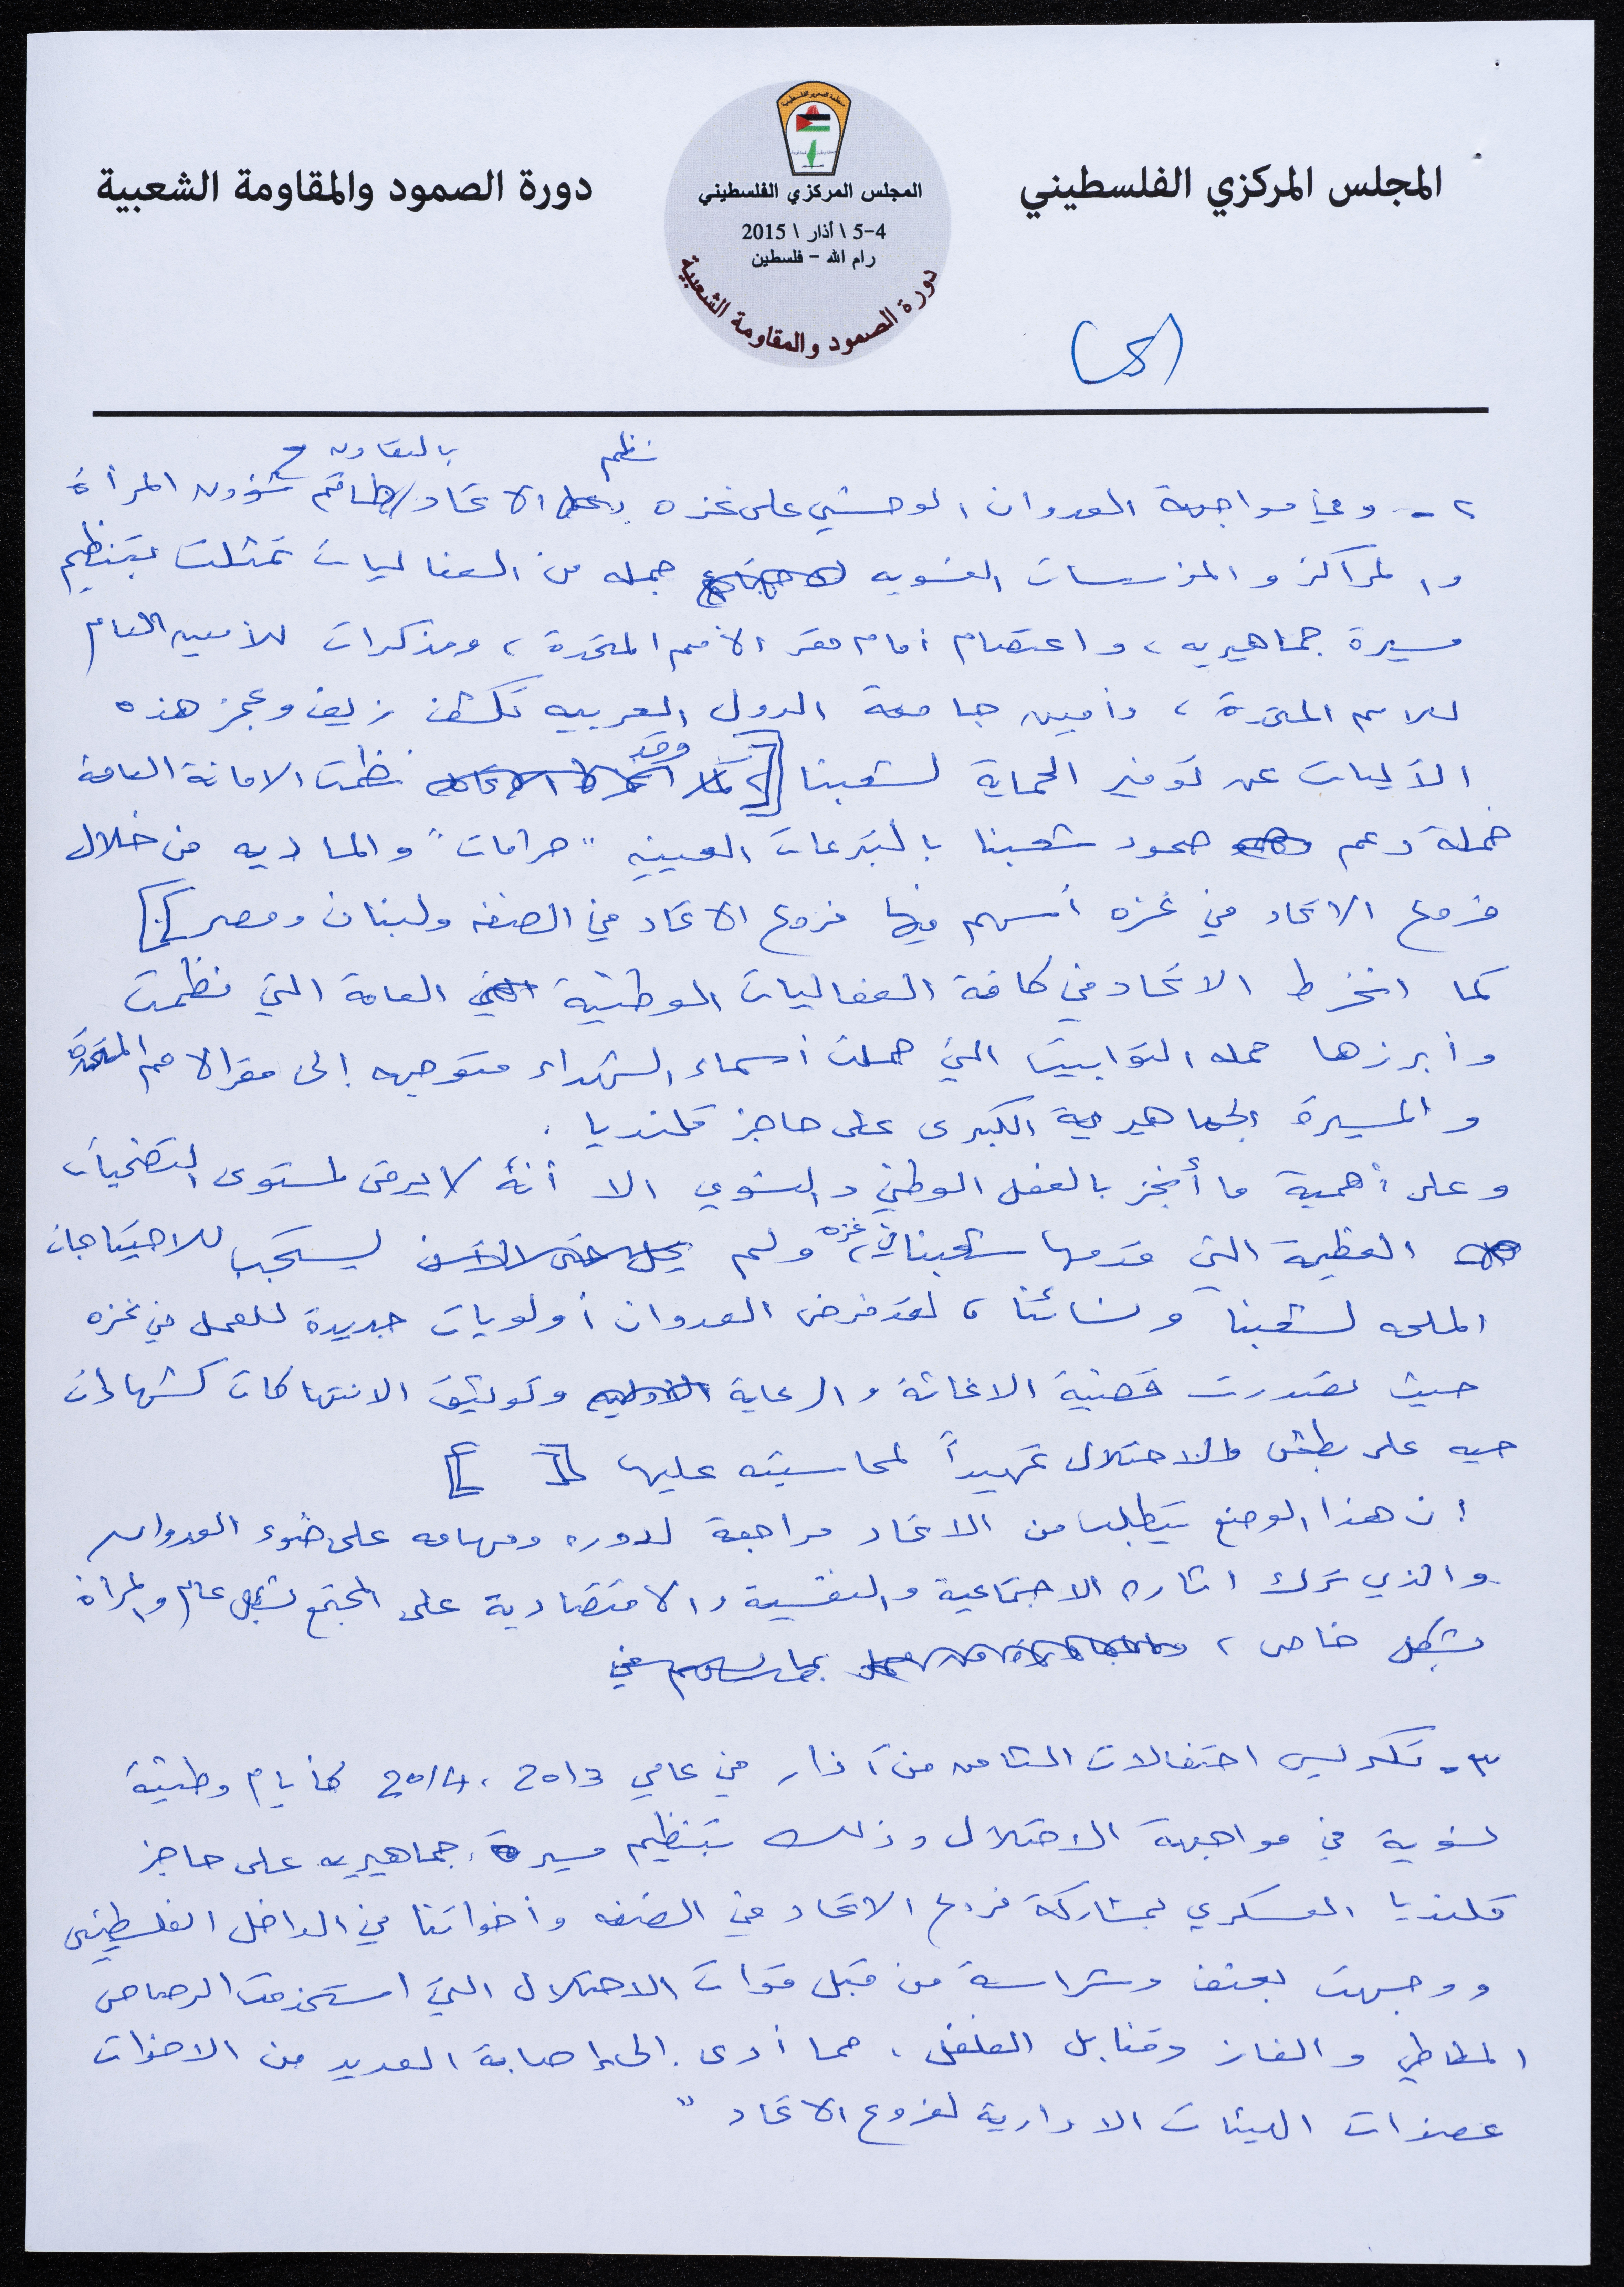 المجلس المركزي الفلسطيني
منظمة التحرير الفلسطينية
المجلس المركزي الفلسطيني
4-5 \ أذار \ 2015
رام الله - فلسطين
دورة الصمود والمقاومة الشعبية
دورة الصمود والمقاومة الشعبية
نظم بالتعاون مع
٢ - وفي مواجهة العدوان الوحشي على غزه الاتحاد/ طاقم شؤون المرأة
والمراكز والمؤسسات النسويه جمله من الفعاليات تمثلت بتنظيم
مسيرة جماهيريه، واعتصام أمام مقر الأمم المتحدة، ومذكرات للأمين العام
للامم المتحدة، وأمين جامعة الدول العربيه تكشف زيف وعجز هذه
الآليات عن توفير الحماية لشعبنا [ وقد نظمت الامانة العامة
حملة دعم صمود شعبنا بالتبرعات العينيه "حرامات" والماديه من خلال
فروع الاتحاد في غزه أسهم فيها فروع الاتحاد في الضفه ولبنان ومصر [.]
كما انخرط الاتحاد في كافة الفعاليات الوطنية العامة التي نظمت
وأبرزها حمله التوابيت التي حملت أسماء الشهداء متوجهه إلى مقر الامم المتحدة
والمسيرة الجماهيرية الكبرى على حاجز قلنديا .
وعلى أهمية ما أنجز بالفعل الوطني والنسوي الا أنه لا يرقى لمستوى التضحيات
العظيمة التي قدمها شعبنا في غزه، ولم يستجب للاحتياجات
الملحه لشعبنا ونسائنا، لقد فرض العدوان أولويات جديدة للعمل في غزه
حيث تصدرت قضية الاغاثة والرعاية وتوثيق الانتهاكات كشهادات
حيه على بطش الاحتلال تمهيداً لمحاسبته عليها [ ]
إن هذا الوضع يتطلب من الاتحاد مراجعة لدوره ومهامه على ضوء العدوان
والذي ترك اثاره الاجتماعية والنفسية والاقتصادية على المجتمع بشكل عام والمرأة
بشكل خاص،
٣ - تكريس احتفالات الثامن من آذار في عامي 2013، 2014 كأيام وطنية
نسوية في مواجهة الاحتلال وذلك بتنظيم مسيرة جماهيريه على حاجز
قلنديا العسكري بمشاركة فروع الاتحاد في الضفه وأخواتنا في الداخل الفلسطيني
ووجهت بعنف وشراسة من قبل قوات الاحتلال التي استخدمت الرصاص
المطاطي والغاز وقنابل الفلفل، مما أدى إلى إصابة العديد من الاخوات
عضوات الهيئات الادارية لفروع الاتحاد "